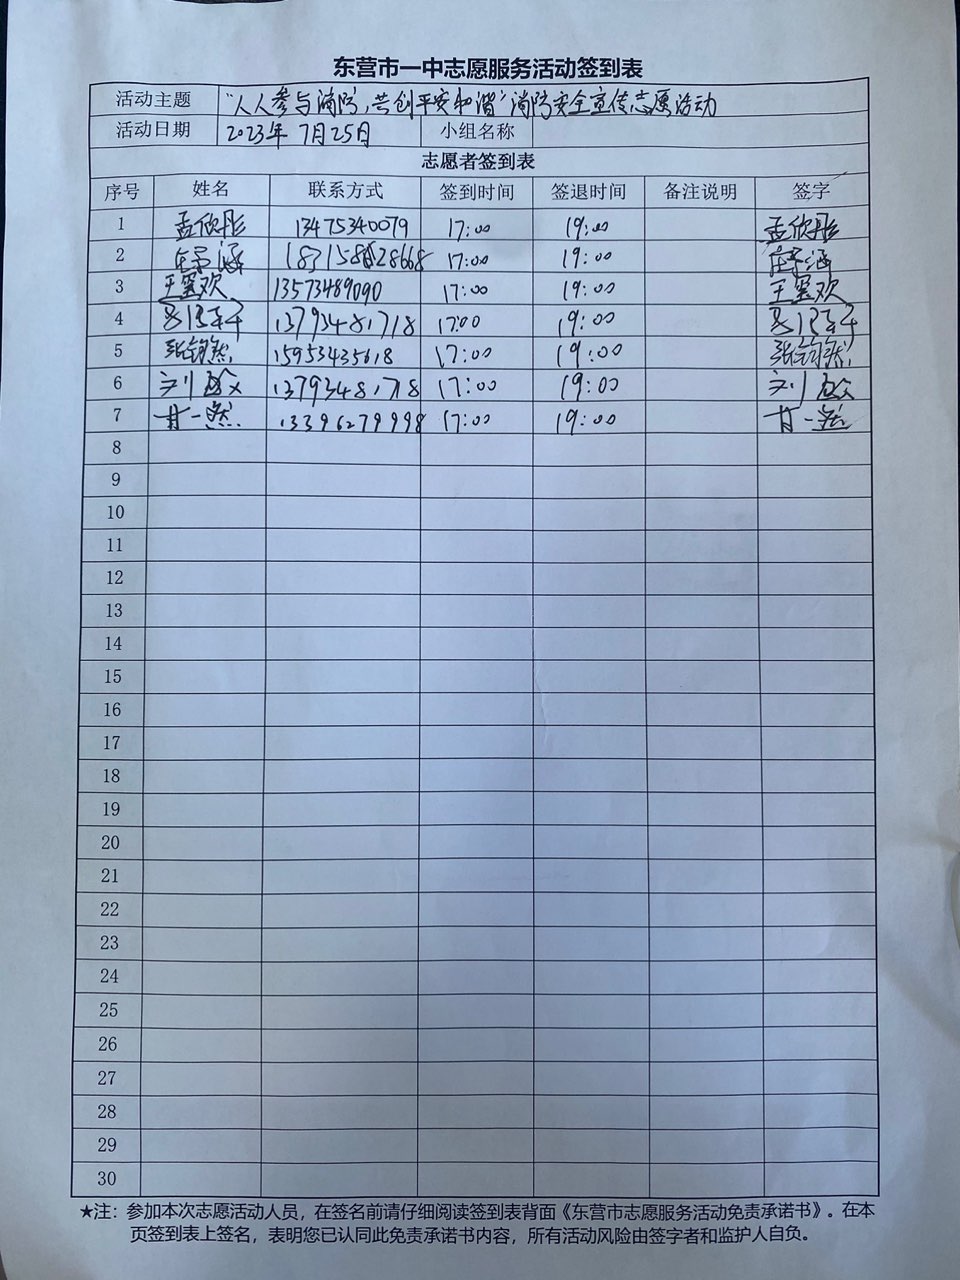 东营市一中志愿服务活动签到表
活动主题 “人人参与消防,共创平安和谐”消防安全宣传志愿活动
活动日期 2023年 7月25日 小组名称
志愿者签到表
序号 姓名 联系方式 签到时间 签退时间 备注说明 签字
1 孟欣彤 13475340079 17:00 19:00 孟欣彤
2 17:00 19:00
3 王墨欢 13573489090 17:00 19:00 王墨欢
4 13793481718 17:00 19:00
5 张钧然 15953435618 17:00 19:00 张钧然
6 刘 13793481718 17:00 19:00 刘
7 甘一然 13396279998 17:00 19:00 甘一然
8
9
10
11
12
13
14
15
16
17
18
19
20
21
22
23
24
25
26
27
28
29
30
★注：参加本次志愿活动人员，在签名前请仔细阅读签到表背面《东营市志愿服务活动免责承诺书》。在本
页签到表上签名，表明您已认同此免责承诺书内容，所有活动风险由签字者和监护人自负。